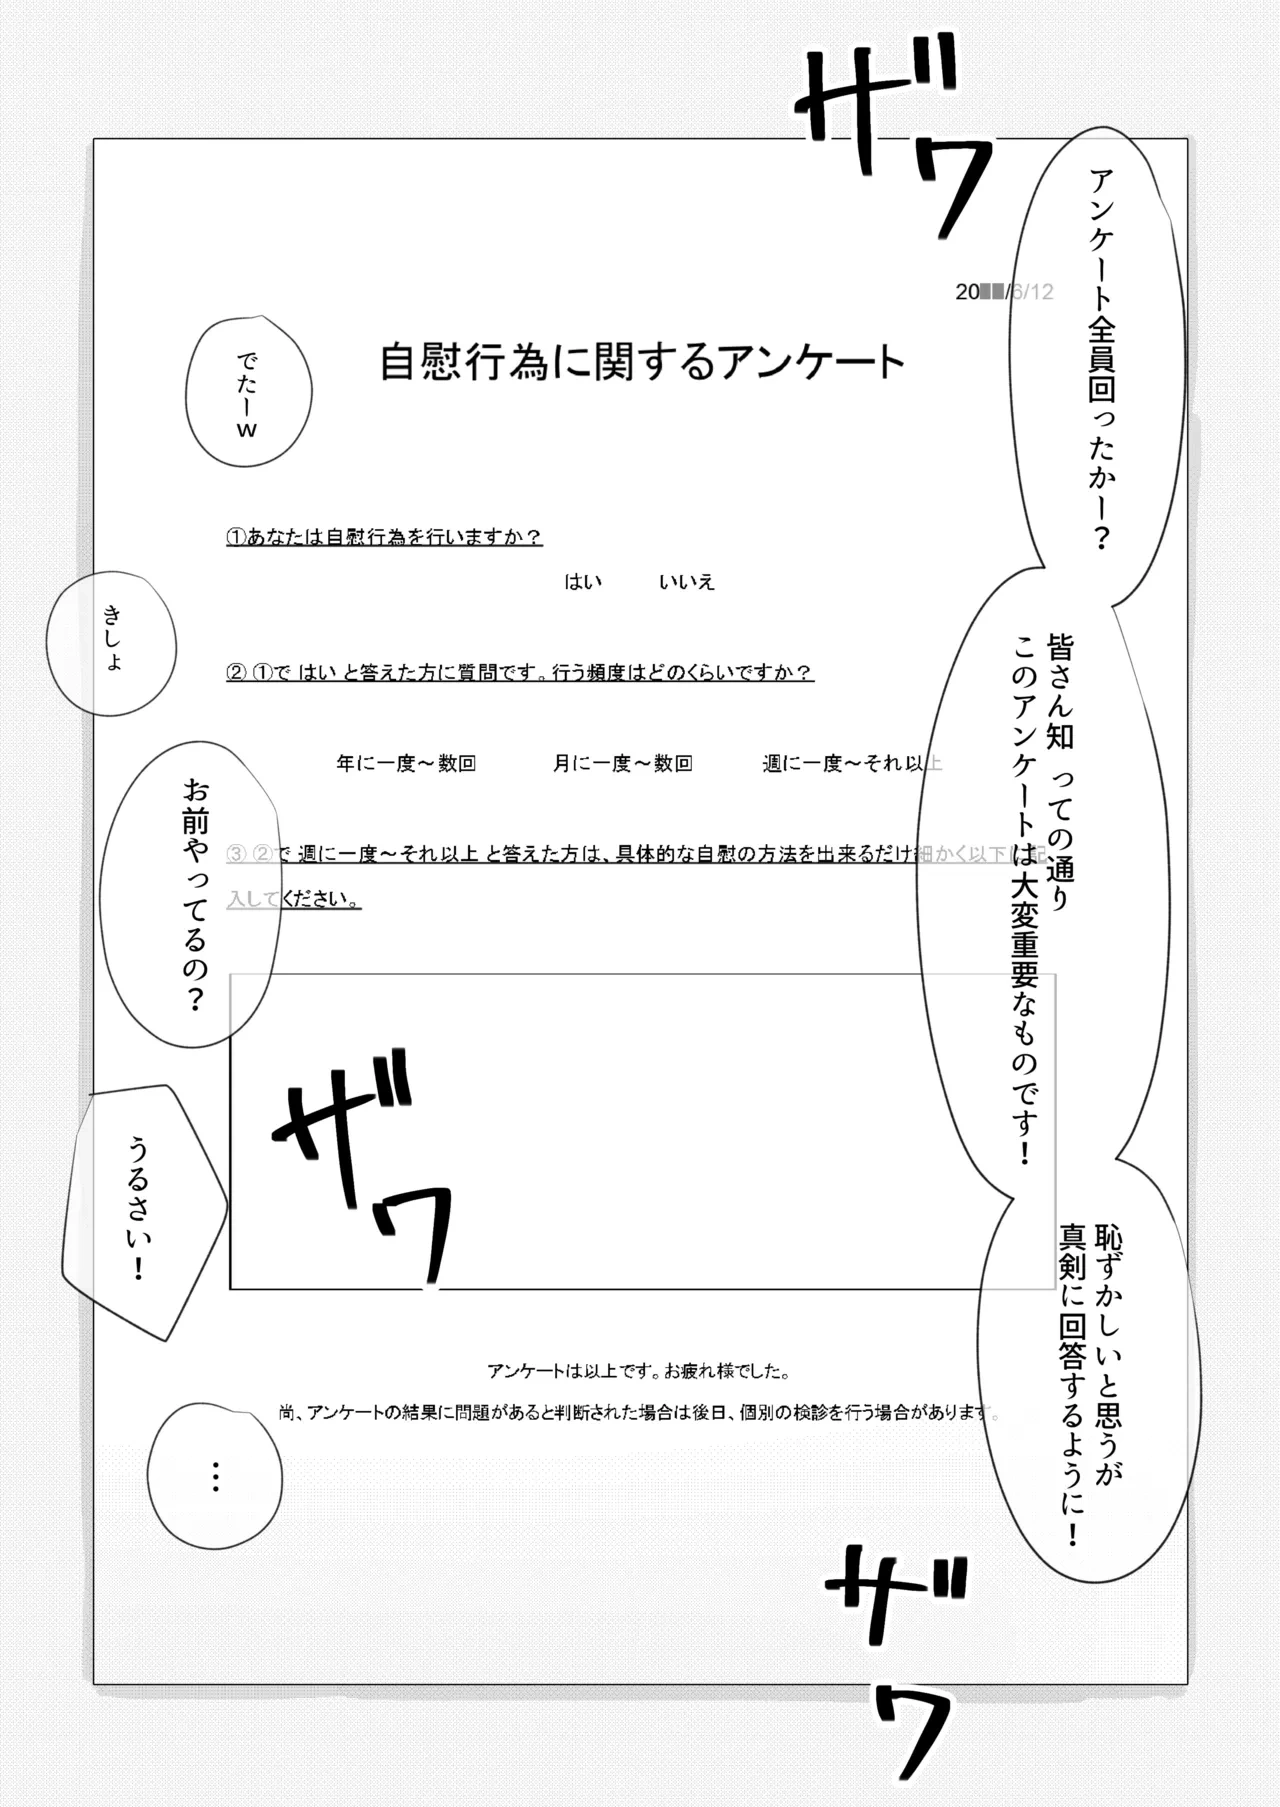 ザワ
アンケート全員回ったかー？
皆さん知っての通り
このアンケートは大変重要なものです！
恥ずかしいと思うが
真剣に回答するように！
20██/6/12
自慰行為に関するアンケート
でたーw
①あなたは自慰行為を行いますか？
はい　いいえ
きしょ
② ①で はい と答えた方に質問です。行う頻度はどのくらいですか？
年に一度～数回　月に一度～数回　週に一度～それ以上
お前やってるの？
③ ②で 週に一度～それ以上 と答えた方は、具体的な自慰の方法を出来るだけ細かく以下に記
入してください。
ザワ
うるさい！
アンケートは以上です。お疲れ様でした。
尚、アンケートの結果に問題があると判断された場合は後日、個別の検診を行う場合があります。
…
ザワ